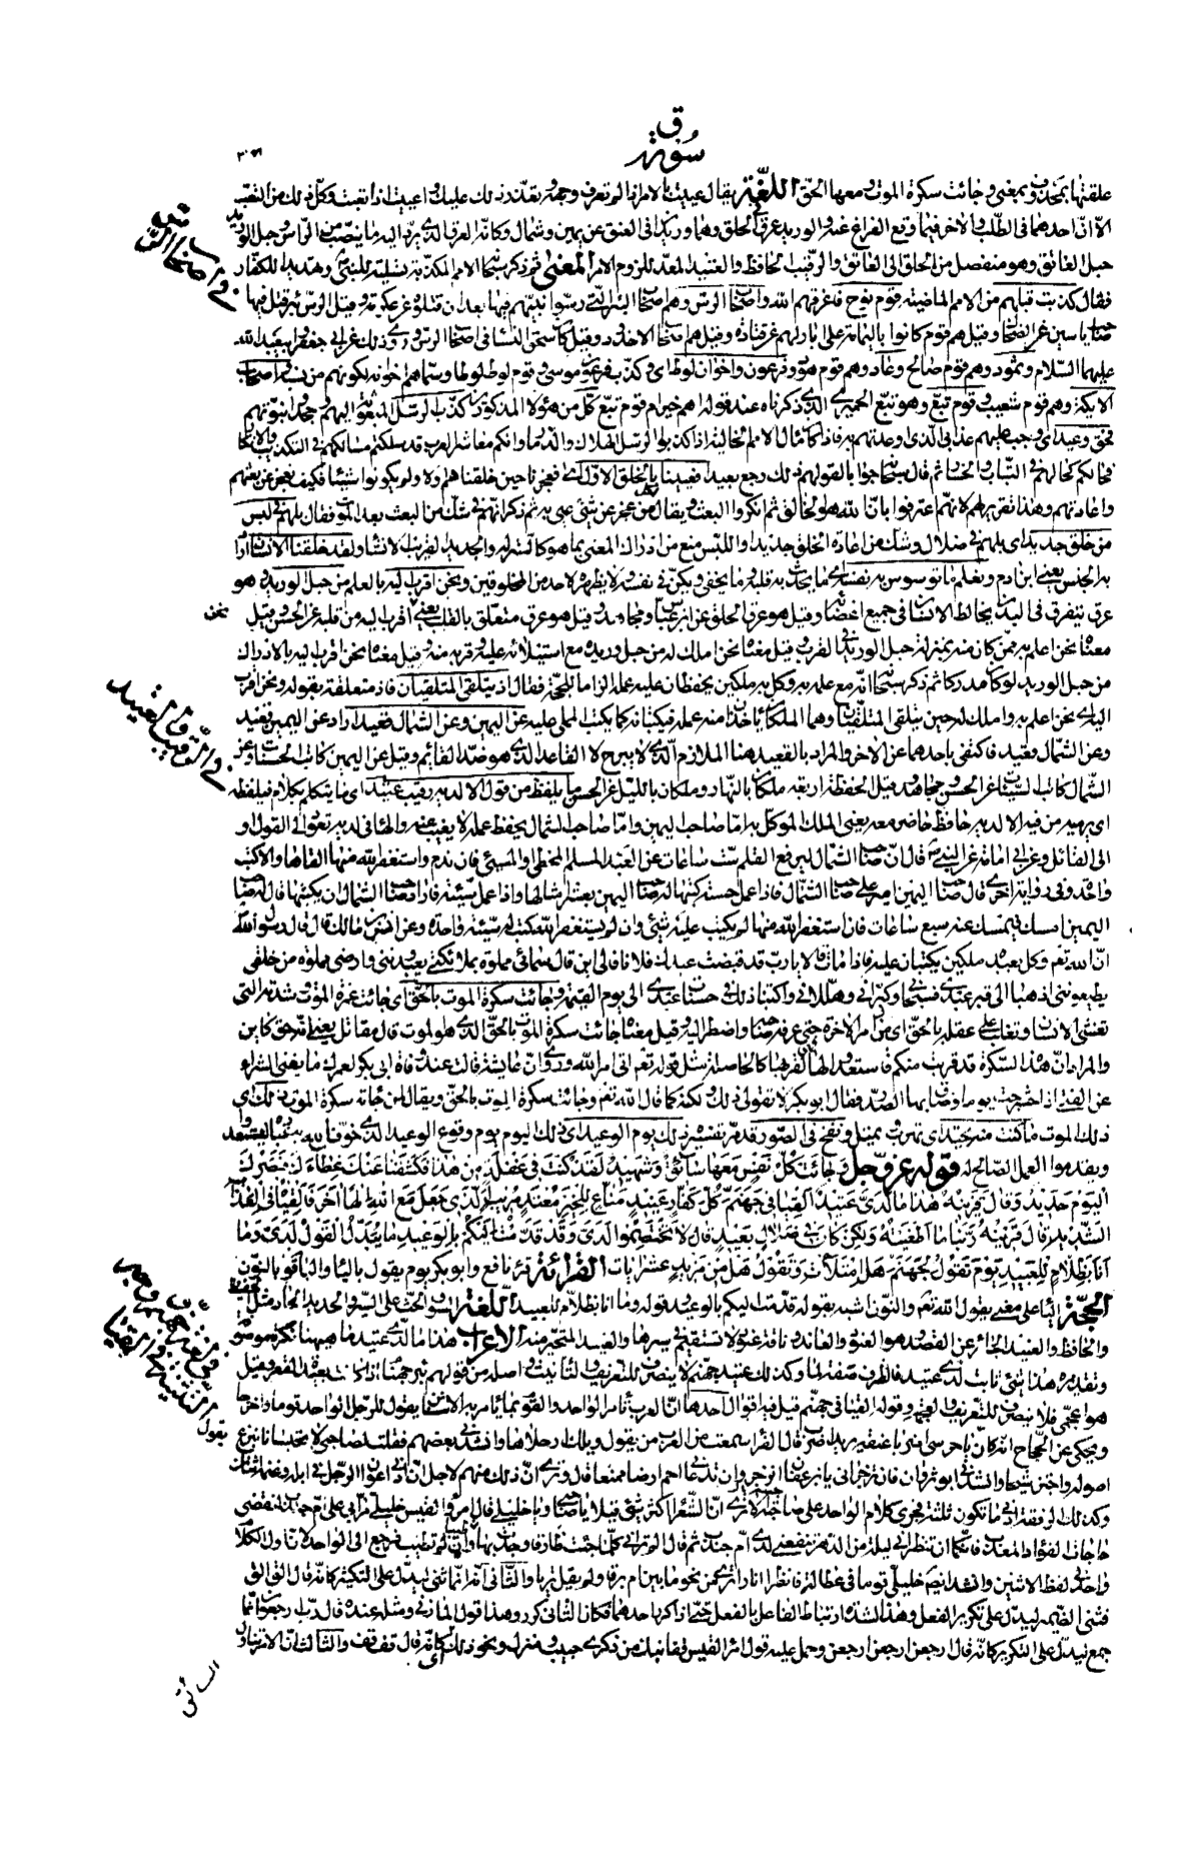 سورة ق
علقتها بمحذوف بمعنى وجائت سكرة الموت ومعها الحق اللغة يقال عييت بالامر اذا لم تعرف وجهه وتعذر ذلك عليك واعييت اذا تعبت وكل ذلك من التعب
الا ان احدهما في الطلب والاخر فيما وقع الفراغ عنه والوريد عرق في الحلق وهما وريدان في العنق عن يمين وشمال وكانه العرق الذي يرد اليه ما ينصب من الراس وحبل الوريد
حبل العاتق وهو منفصل من الحلق الى العاتق والرقيب الحافظ والعتيد المعد للزوم الامر المعنى ثم ذكر سبحانه الامم المكذبة تسلية للنبي وتهديدا للكفار
فقال كذبت قبلهم من الامم الماضية قوم نوح فاغرقهم الله واصحاب الرس وهم اصحاب البئر التي رسوا نبيهم فيها بعد ان قتلوه عن عكرمة وقيل الرس بئر قتل فيها
صاحب ياسين عن الضحاك وقيل هم قوم كانوا باليمامة على ابار لهم عن قتادة وقيل هم اصحاب الاخدود وقيل كان سحق النساء في اصحاب الرس وروي ذلك عن ابي جعفر وابي عبد الله
عليهما السلام وثمود وهم قوم صالح وعاد وهم قوم هود وفرعون واخوان لوط اي وكذب فرعون موسى وقوم لوط لوطا وسماهم اخوانه لكونهم من نسبه واصحاب
الايكة وهم قوم شعيب وقوم تبع وهو تبع الحميري الذي ذكرناه عند قوله اهم خير ام قوم تبع كل من هؤلاء المذكورين كذب الرسل المبعوثة اليهم وجحدوا نبوتهم
فحق وعيد اي وجب عليهم عذابي الذي اوعدتهم به فاذا كان مآل الامم الخالية اذا كذبوا الرسل الهلاك والدمار وانكم معاشر العرب قد سلكتم مسالكهم في التكذيب والانكار
فحالكم كحالهم في التباب والخسار ثم قال سبحانه جوابا لقولهم ذلك رجع بعيد افعيينا بالخلق الاول اي افعجزنا حين خلقناهم اولا ولم يكونوا شيئا فكيف نعجز عن بعثهم
واعادتهم وهذا تقرير لهم لانهم اعترفوا بان الله هو الخالق ثم انكروا البعث ويقال لكل من عجز عن شيء عيي به ثم ذكر انهم في شك من البعث بعد الموت فقال بل هم في لبس
من خلق جديد اي بل هم في ضلال وشك من اعادة الخلق جديدا واللبس منع من ادراك المعنى بما هو كالستر له والجديد القريب الانشاء ولقد خلقنا الانسان اراد
به الجنس يعني ابن ادم ونعلم ما توسوس به نفسه اي ما يحدث به قلبه وما يخفي ويكن في نفسه ولا يظهره لاحد من المخلوقين ونحن اقرب اليه بالعلم من حبل الوريد وهو
عرق يتفرق في البدن يخالط الانسان في جميع اعضائه وقيل هو عرق الحلق عن ابن عباس ومجاهد وقيل هو عرق متعلق بالقلب يعني نحن اقرب اليه من قلبه عن الحسن وقيل
معناه نحن اعلم به ممن كان منه بمنزلة حبل الوريد في القرب وقيل معناه نحن املك له من حبل وريده مع استيلائه عليه وقربه منه وقيل معناه نحن اقرب اليه بالادراك
من حبل الوريد لو كان مدركا ثم ذكر سبحانه انه مع علمه به وكل به ملكين يحفظان عليه عمله الزاما للحجة فقال اذ يتلقى المتلقيان فاذ متعلقة بقوله ونحن اقرب
اليه اي نحن اعلم به واملك له حين يتلقى المتلقيان وهما الملكان ياخذان منه عمله فيكتبانه كما يكتب المملى عليه عن اليمين وعن الشمال قعيد اراد عن اليمين قعيد
وعن الشمال قعيد فاكتفى باحدهما عن الاخر والمراد بالقعيد هنا الملازم الذي لا يبرح لا القاعد الذي هو ضد القائم وقيل عن اليمين كاتب الحسنات وعن
الشمال كاتب السيئات عن الحسن ومجاهد وقيل الحفظة اربعة ملكان بالنهار وملكان بالليل عن الحسن ما يلفظ من قول الا لديه رقيب عتيد اي ما يتكلم بكلام فيلفظه
اي يرميه من فيه الا لديه حافظ حاضر معه يعني الملك الموكل به اما صاحب اليمين واما صاحب الشمال يحفظ عمله لا يغيب عنه والهاء في لديه تعود الى القول او
الى القائل وعن ابي امامة عن النبي قال ان صاحب الشمال ليرفع القلم ست ساعات عن العبد المسلم المخطئ او المسيء فان ندم واستغفر الله منها القاها والا كتب
واحدة وفي رواية اخرى قال صاحب اليمين امير على صاحب الشمال فاذا عمل حسنة كتبها له صاحب اليمين بعشر امثالها واذا عمل سيئة فاراد صاحب الشمال ان يكتبها قال له صاحب
اليمين امسك فيمسك عنه سبع ساعات فان استغفر الله منها لم يكتب عليه شيء وان لم يستغفر الله كتب له سيئة واحدة وعن انس بن مالك قال قال رسول الله
ان الله تعالى وكل بعبده ملكين يكتبان عليه فاذا مات قالا يا رب قد قبضت عبدك فلانا فالى اين قال سمائي مملوة بملائكتي يعبدونني وارضي مملوة من خلقي
يطيعونني اذهبا الى قبر عبدي فسبحاني وكبراني وهللاني واكتبا ذلك في حسنات عبدي الى يوم القيمة وجائت سكرة الموت بالحق اي جائت غمرة الموت وشدته التي
تغشى الانسان وتغلب على عقله بالحق اي من امر الاخرة حتى عرفه صاحبه واضطر اليه وقيل معناه جائت سكرة الموت بالحق الذي هو الموت قال مقاتل يعني انه حق كائن
والمراد ان هذه السكرة قد قربت منكم فاستعدوا لها فلقربها كالحاصلة مثل قوله تعالى اتى امر الله وروي ان عايشة قالت عند وفاة ابي بكر لعمرك ما يغني الثراء
عن الفتى اذا حشرجت يوما وضاق بها الصدر فقال ابو بكر لا تقولي ذلك ولكنه كما قال الله تعالى وجائت سكرة الموت بالحق ويقال لمن جائته سكرة الموت ذلك اي
ذلك الموت ما كنت منه تحيد اي تهرب وتميل ونفخ في الصور قد مر تفسيره ذلك يوم الوعيد اي ذلك اليوم يوم وقوع الوعيد الذي خوف الله به عباده ليستعدوا
ويقدموا العمل الصالح له قوله عز وجل وجائت كل نفس معها سائق وشهيد لقد كنت في غفلة من هذا فكشفنا عنك غطاءك فبصرك
اليوم حديد وقال قرينه هذا ما لدي عتيد القيا في جهنم كل كفار عنيد مناع للخير معتد مريب الذي جعل مع الله الها اخر فالقياه في العذاب
الشديد قال قرينه ربنا ما اطغيته ولكن كان في ضلال بعيد قال لا تختصموا لدي وقد قدمت اليكم بالوعيد ما يبدل القول لدي وما
انا بظلام للعبيد يوم نقول لجهنم هل امتلات وتقول هل من مزيد عشر ايات القرائة قرء نافع وابو بكر يوم يقول بالياء والباقون بالنون
الحجة الياء على معنى يقول الله تعالى والنون اشبه بقوله قدمت اليكم بالوعيد وقوله وما انا بظلام للعبيد اللغة السوق الحث على السير والحديد الحاد مثل الحفيظ
والحافظ والعنيد الجائر عن القصد وهو العنود والعاند وناقة عنود لا تستقيم في سيرها والعنيد المتحير منه الاعراب هذا ما لدي عتيد ما ههنا نكرة موصوفة
وتقديره هذا شيء ثابت لدي عتيد فالظرف صفة لما وكذلك عتيد جهنم لا ينصرف للتعريف والتانيث واصله من قولهم بئر جهنام اذا كانت بعيدة القعر وقيل
هو اعجمي فلا ينصرف للتعريف والعجمة وقوله القيا في جهنم قيل فيه اقوال احدها ان العرب تامر الواحد والقوم بما يامر به الاثنين يقول للرجل الواحد قوما واخرجا
ويحكى عن الحجاج انه كان يا حرسي اضربا عنقه يريد اضرب قال الفراء سمعت من العرب من يقول ويلك ارحلاها وانشدني بعضهم فقلت لصاحبي لا تحبسانا بنزع
اصوله واجتز شيحا وانشدني ابو ثروان فان تزجراني يا بن عفان انزجر وان تدعاني احم عرضا ممنعا قال ونرى ان ذلك منهم لاجل ان ادنى اعوان الرجل في ابله وغنمه اثنان
وكذلك الرفقة ادنى ما تكون ثلثة فجرى كلام الواحد على صاحبيه الا ترى ان الشعراء اكثر شيء قيلا يا صاحبي ويا خليلي قال امرؤ القيس خليلي مرا بي على ام جندب نقضي
حاجات الفؤاد المعذب فانكما ان تنظراني ليلة من الدهر تنفعني لدى ام جندب ثم قال الم تر اني كلما جئت طارقا وجدت بها طيبا وان لم تطيب فرجع الى الواحد لان اول الكلام
واحد في لفظ الاثنين وانشد ايضا خليلي قوما في عطالة فانظرا انارا ترى من نحو ما بين ام برقا ولم يقل تريا والثاني انه انما ثني ليدل على التكثير كانه قال الق الق
فثنى الضمير ليدل على تكرير الفعل وهذا لشدة ارتباط الفاعل بالفعل حتى اذا كرر احدهما فكان الثاني كرر وهذا قول المازني ومثله عنده قال رب ارجعون انما
جمع ليدل على التكرير كانه قال ارجعن ارجعن ارجعن وحمل عليه قول امرئ القيس قفا نبك من ذكرى حبيب ومنزل ونحو ذلك اي كانه قال قف قف والثالث ان الامر تناول
السائق